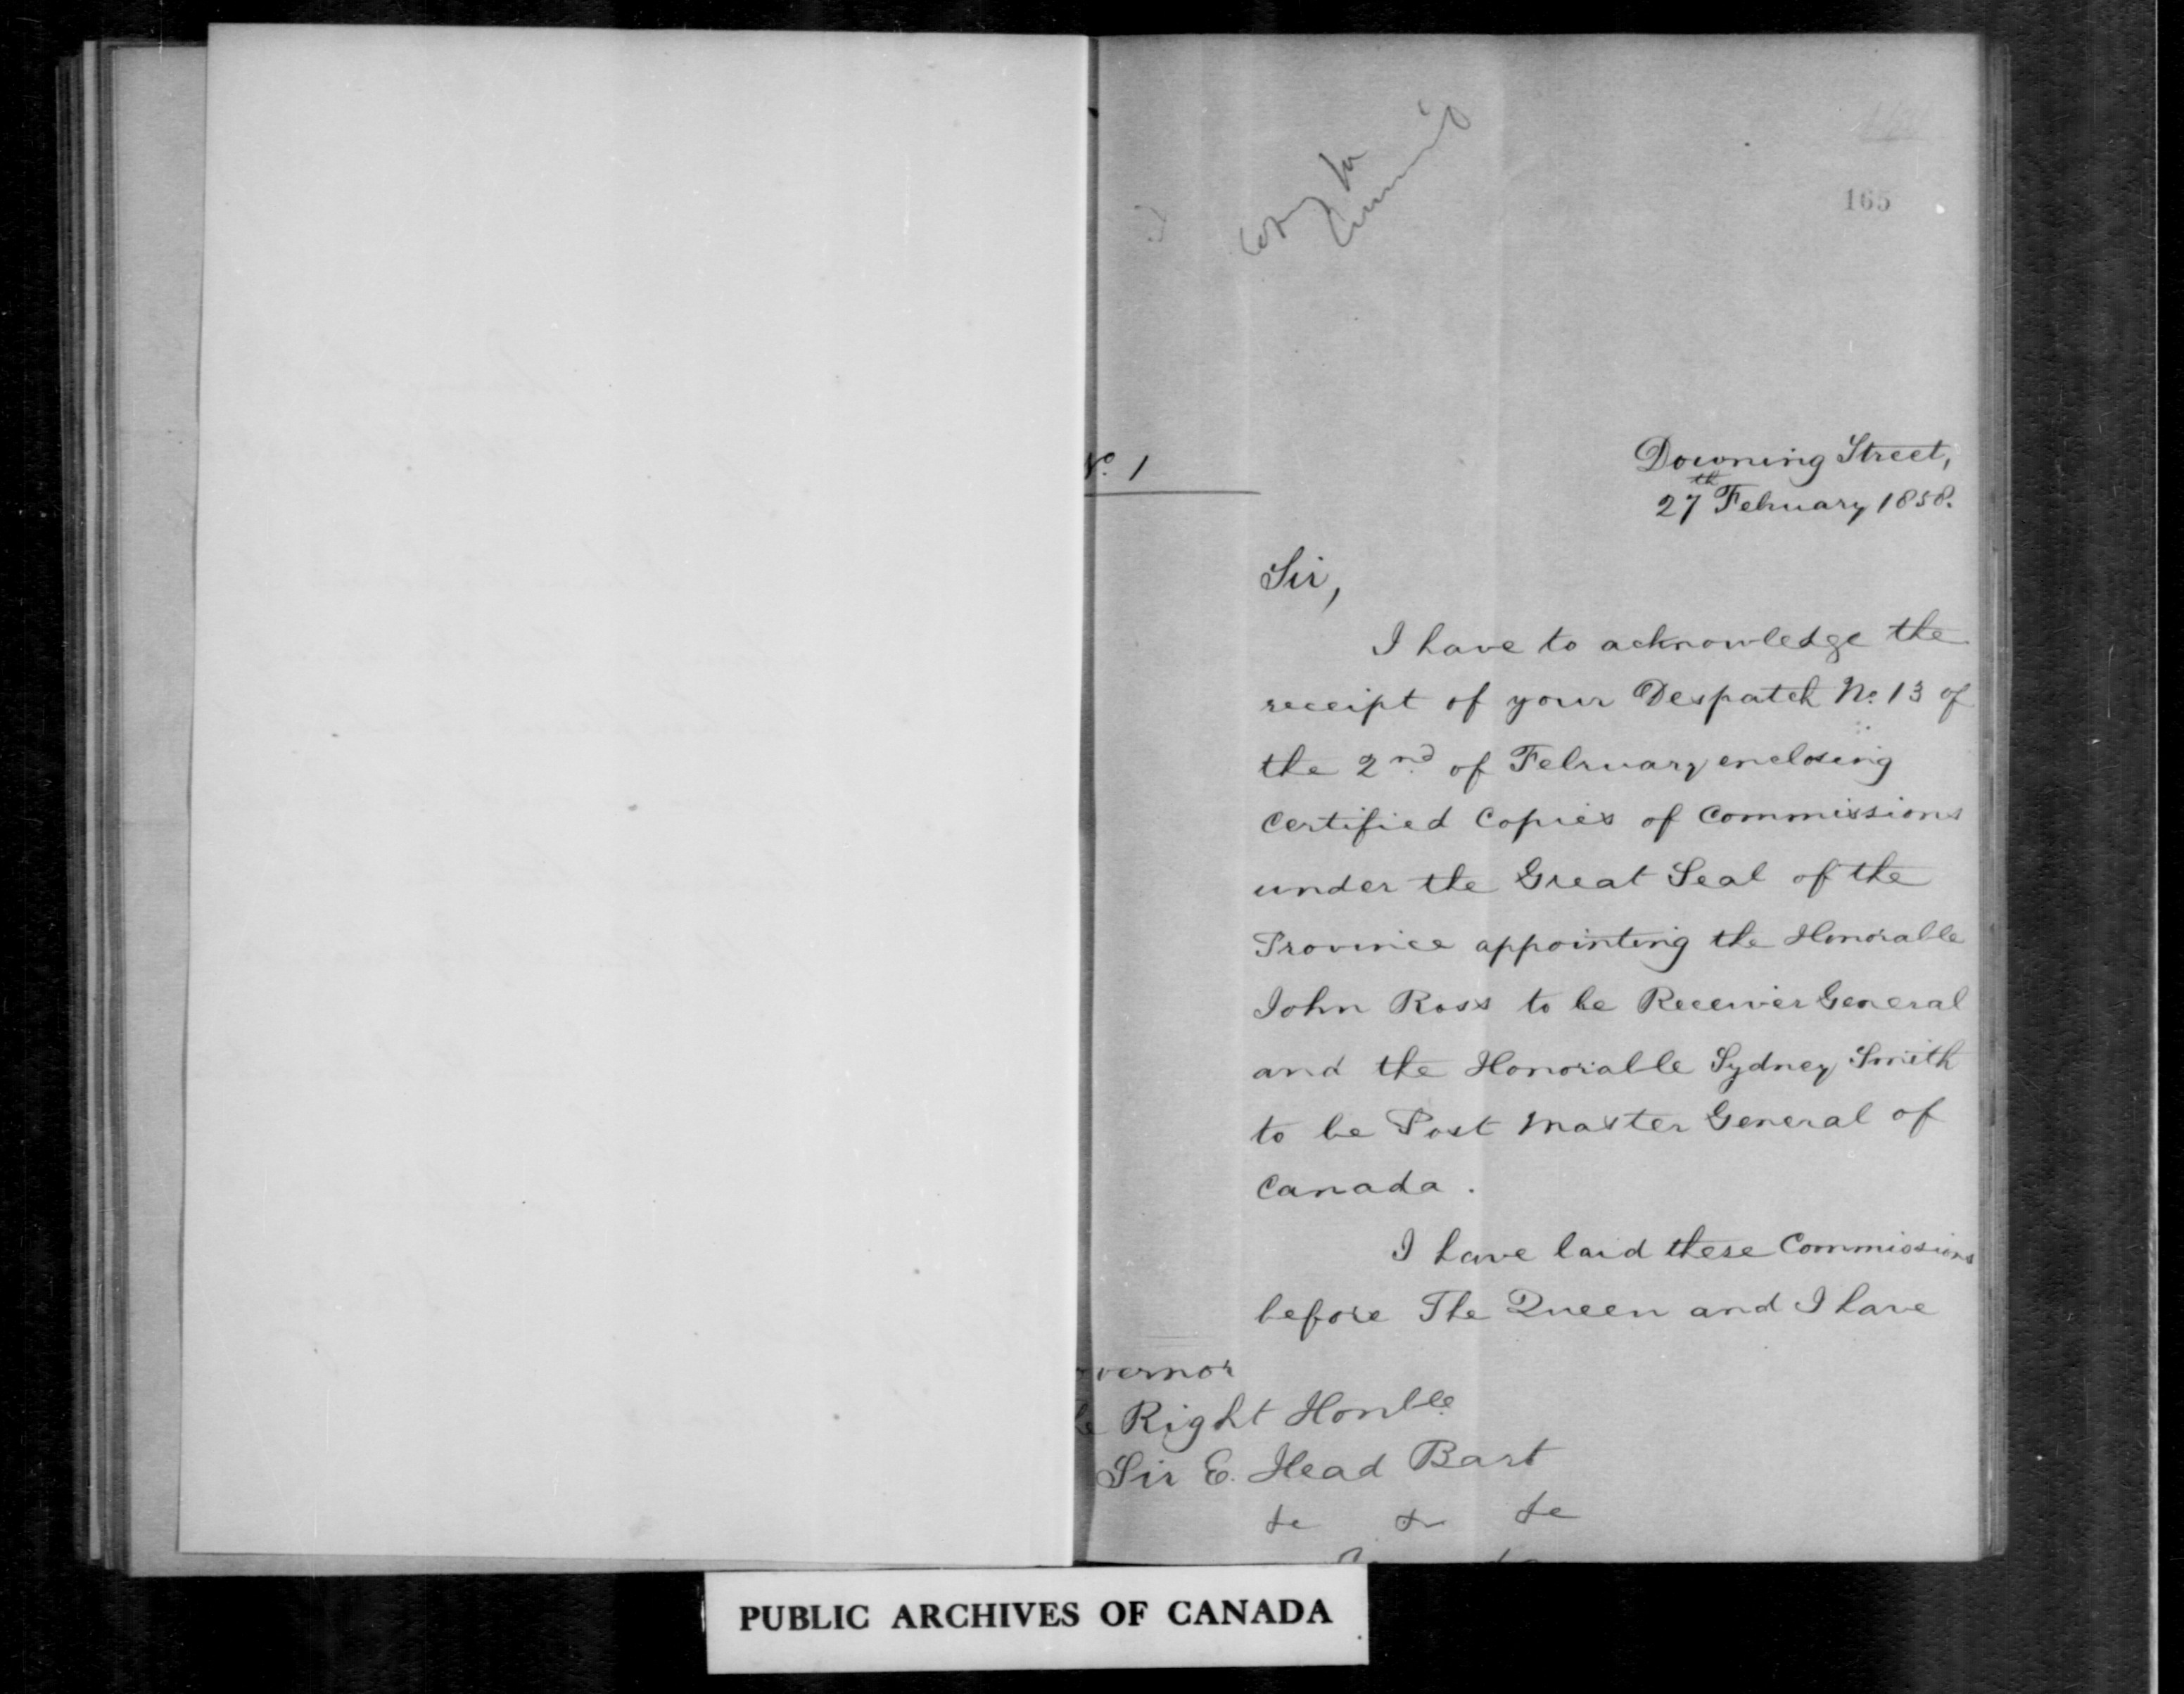 165
No. 1
Downing Street,
27th February 1858.
Sir,
I have to acknowledge the
receipt of your Despatch No. 13 of
the 2nd of February enclosing
Certified Copies of Commissions
under the Great Seal of the
Province appointing the Honorable
John Ross to be Receiver General
and the Honorable Sydney Smith
to be Post Master General of
Canada.
I have laid these Commissions
before The Queen and I have
vernor
Right Honble
Sir E. Head Bart
&c &c &c
PUBLIC ARCHIVES OF CANADA